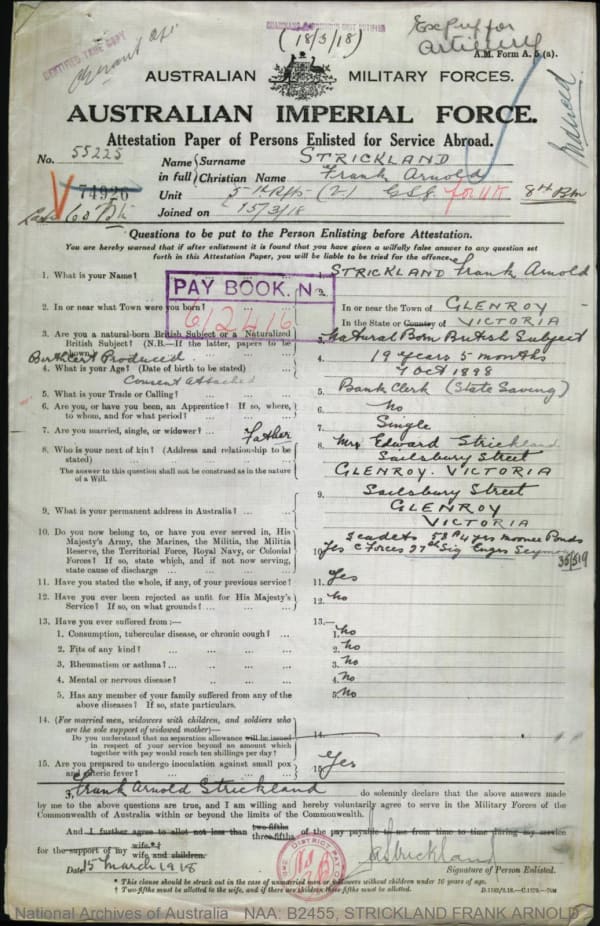 (18/3/18)
Artillery
A.M. Form A. 5 (a).
CERTIFIED TRUE COPY
AUSTRALIAN MILITARY FORCES.
AUSTRALIAN IMPERIAL FORCE.
Attestation Paper of Persons Enlisted for Service Abroad.
No. 55225
74926
Name in full { Surname STRICKLAND
Christian Name Frank Arnold
Unit 5th Rfts (2) G.S.R. for UK 8th Bn
Joined on 15/3/18
Questions to be put to the Person Enlisting before Attestation.
You are hereby warned that if after enlistment it is found that you have given a wilfully false answer to any question set
forth in this Attestation Paper, you will be liable to be tried for the offence.
PAY BOOK. No.
612416
1. What is your Name? ... 1. STRICKLAND Frank Arnold
2. In or near what Town were you born? ... In or near the Town of GLENROY
In the State or County of VICTORIA
3. Are you a natural-born British Subject or a Naturalized
British Subject? (N.B.—If the latter, papers to be
shown) 3. Natural Born British Subject
Birth Cert Produced
4. What is your Age? (Date of birth to be stated) 4. 19 years 5 months
7 Oct 1898
Consent Attached
5. What is your Trade or Calling? ... 5. Bank Clerk (State Saving)
6. Are you, or have you been, an Apprentice? If so, where,
to whom, and for what period? ... 6. No
7. Are you married, single, or widower? ... 7. Single
Father
8. Who is your next of kin? (Address and relationship to be
stated) 8. Mr Edward Strickland
Sailsbury Street
GLENROY. VICTORIA
The answer to this question shall not be construed as in the nature
of a Will.
9. What is your permanent address in Australia? ... 9. Sailsbury Street
GLENROY
VICTORIA
10. Do you now belong to, or have you ever served in, His
Majesty's Army, the Marines, the Militia, the Militia
Reserve, the Territorial Force, Royal Navy, or Colonial
Forces? If so, state which, and if not now serving,
state cause of discharge ...
Scadets 58th 4 yrs Moonee Ponds
10. Yes C Forces 27th Sig Engrs Seymour
11. Have you stated the whole, if any, of your previous service? 11. Yes
12. Have you ever been rejected as unfit for His Majesty's
Service? If so, on what grounds? ... 12. No
13. Have you ever suffered from:— 13.—
1. Consumption, tubercular disease, or chronic cough? ... 1. No
2. Fits of any kind? ... 2. No
3. Rheumatism or asthma? ... 3. No
4. Mental or nervous disease? ... 4. No
5. Has any member of your family suffered from any of the
above diseases? If so, state particulars. 5. No
14. (For married men, widowers with children, and soldiers who
are the sole support of widowed mother)—
Do you understand that no separation allowance will be issued
in respect of your service beyond an amount which
together with pay would reach ten shillings per day? 14.
15. Are you prepared to undergo inoculation against small pox
and enteric fever? ... 15. Yes
I, Frank Arnold Strickland do solemnly declare that the above answers made
by me to the above questions are true, and I am willing and hereby voluntarily agree to serve in the Military Forces of the
Commonwealth of Australia within or beyond the limits of the Commonwealth.
And I further agree to allot not less than two-fifths three-fifths of the pay payable to me from time to time during my service
for the support of my wife*† wife and children.
Date 15 March 1918
FA Strickland
Signature of Person Enlisted.
* This clause should be struck out in the case of unmarried men or widowers without children under 16 years of age.
† Two-fifths must be allotted to the wife, and if there are children three-fifths must be allotted.
National Archives of Australia NAA: B2455, STRICKLAND FRANK ARNOLD